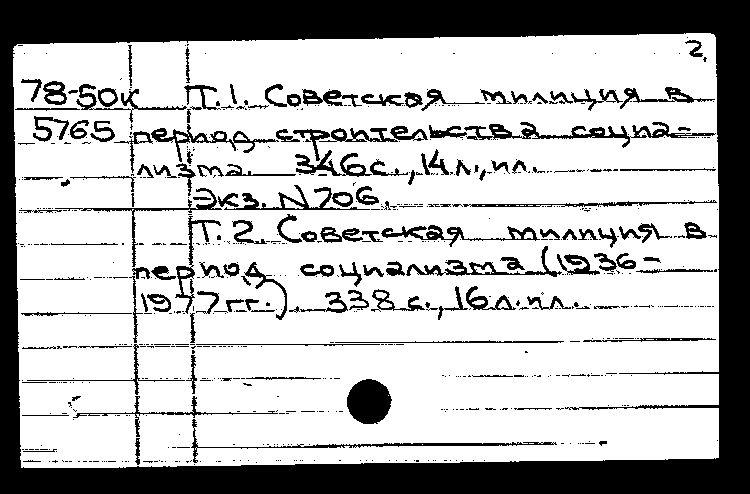 2.
78-50к Т.1. Советская милиция в
5765 период строительства социа-
лизма. 346с., 14л., ил.
Экз. N706.
Т.2. Советская милиция в
период социализма (1936-
1977гг.). 338с., 16л. ил.